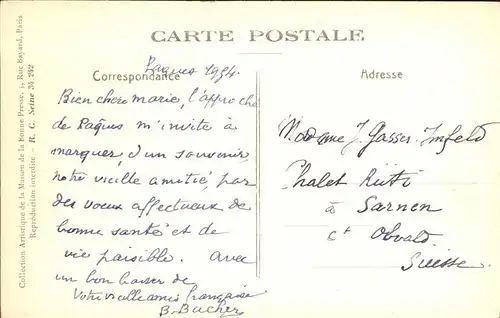 CARTE POSTALE
Correspondance
Pâques 1954.
Bien chère marie, l'approche
de Pâques m'invite à
marquer, d'un souvenir,
notre vieille amitié, par
des voeux affectueux de
bonne santé et de
vie paisible. Avec
un bon baiser de
Votre vieille amie française
B. Bucher
Adresse
Madame J. Gasser. Imfeld
Chalet Rüti
à Sarnen
Ct Obwald.
Suisse.
Collection Artistique de la Maison de la Bonne Presse, 5, Rue Bayard, Paris
Reproduction interdite - R. C. Seine 34 242